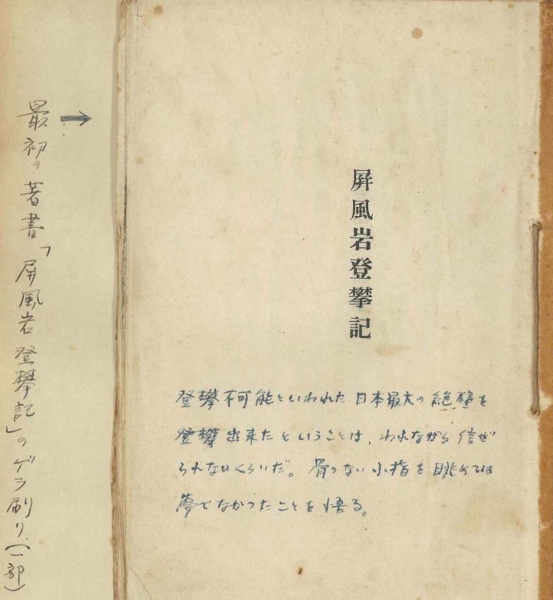 屏風岩登攀記
登攀不可能といわれた日本最大の絶壁を
登攀出来たということは、われながら信ぜ
られないくらいだ。骨のない小指を眺めては
夢でなかつたことを悟る。
最初の著書「屏風岩登攀記」のゲラ刷り(一部)
→